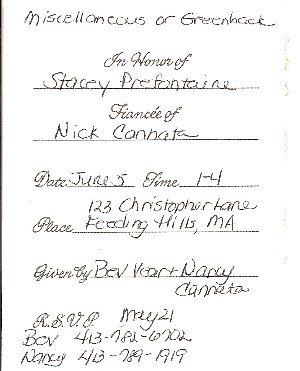 Miscellaneous or Greenback
In Honor of
Stacey Prefontaine
Fiancée of
Nick Cannata
Date June 5 Time 1-4
123 Christopher Lane
Place Feeding Hills, MA
Given by Bev Year + Nancy
Cannata
R.S.V.P. May 21
Bev 413-782-6702
Nancy 413-789-1919